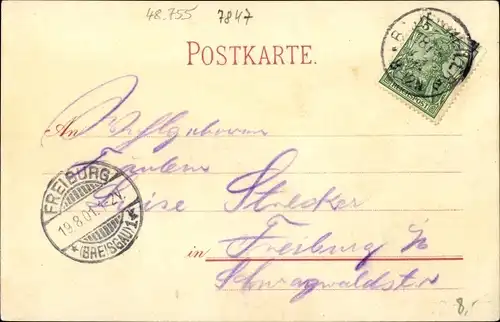 48.755 7847
POSTKARTE.
An Wohlgeboren
Fräulein
Luise Strecker
in Freiburg i/B
FREIBURG
19.8.01.
* (BREISGAU) 1 *
8,-